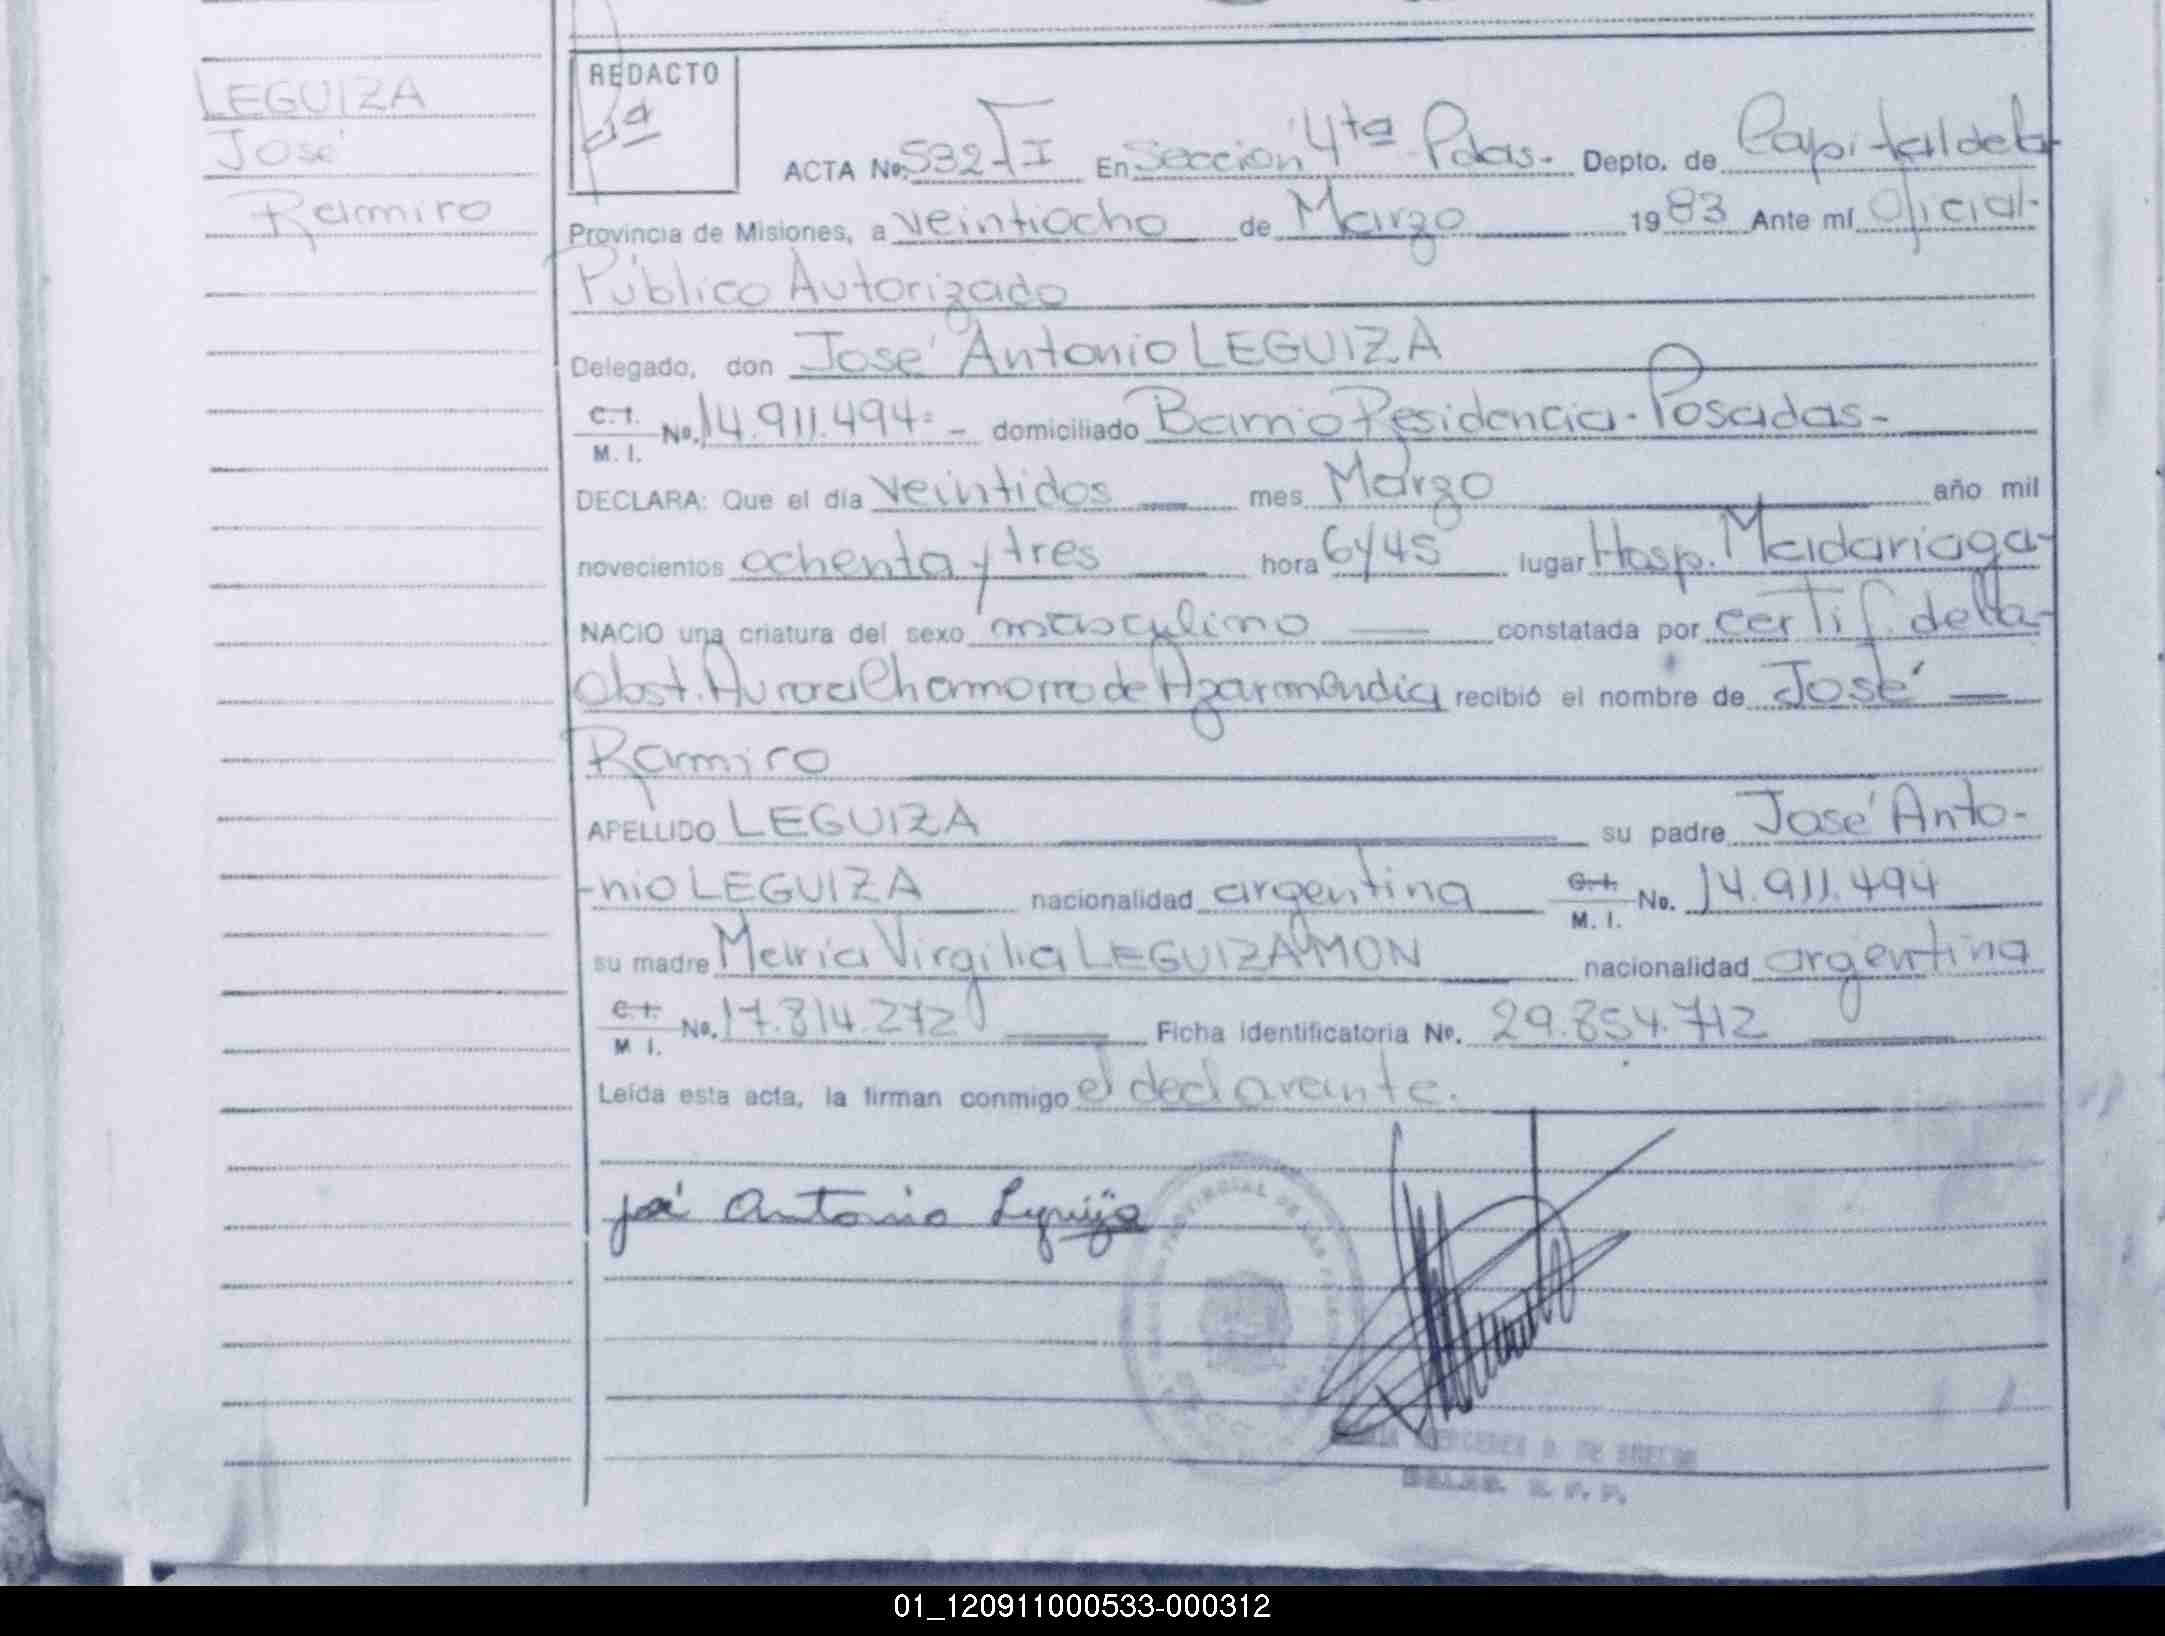 LEGUIZA
José
Ramiro
REDACTO
ACTA No. 532-T I En Sección 4ta Pdas.- Depto. de Capital de la
Provincia de Misiones, a veintiocho de Marzo 1983 Ante mí Oficial-
Público Autorizado
Delegado, don José Antonio LEGUIZA
C.I. M.I. No. 14.911.494.- domiciliado Barrio Residencia-Posadas-
DECLARA: Que el día veintidos mes Marzo año mil
novecientos ochenta y tres hora 6y45 lugar Hosp. Madariaga-
NACIO una criatura del sexo masculino constatada por certif. de la
Obst. Aurora Chamorro de Azarmendia recibió el nombre de José
Ramiro
APELLIDO LEGUIZA su padre José Anto-
-nio LEGUIZA nacionalidad argentina C.I. M.I. No. 14.911.494
su madre María Virgilia LEGUIZAMON nacionalidad argentina
C.I. M I. No. 17.814.272 Ficha identificatoria No. 29.854.712
Leída esta acta, la firman conmigo el declarante.
José Antonio Leguiza
PROVINCIAL DE LAS
MERCEDES D. DE
01_120911000533-000312